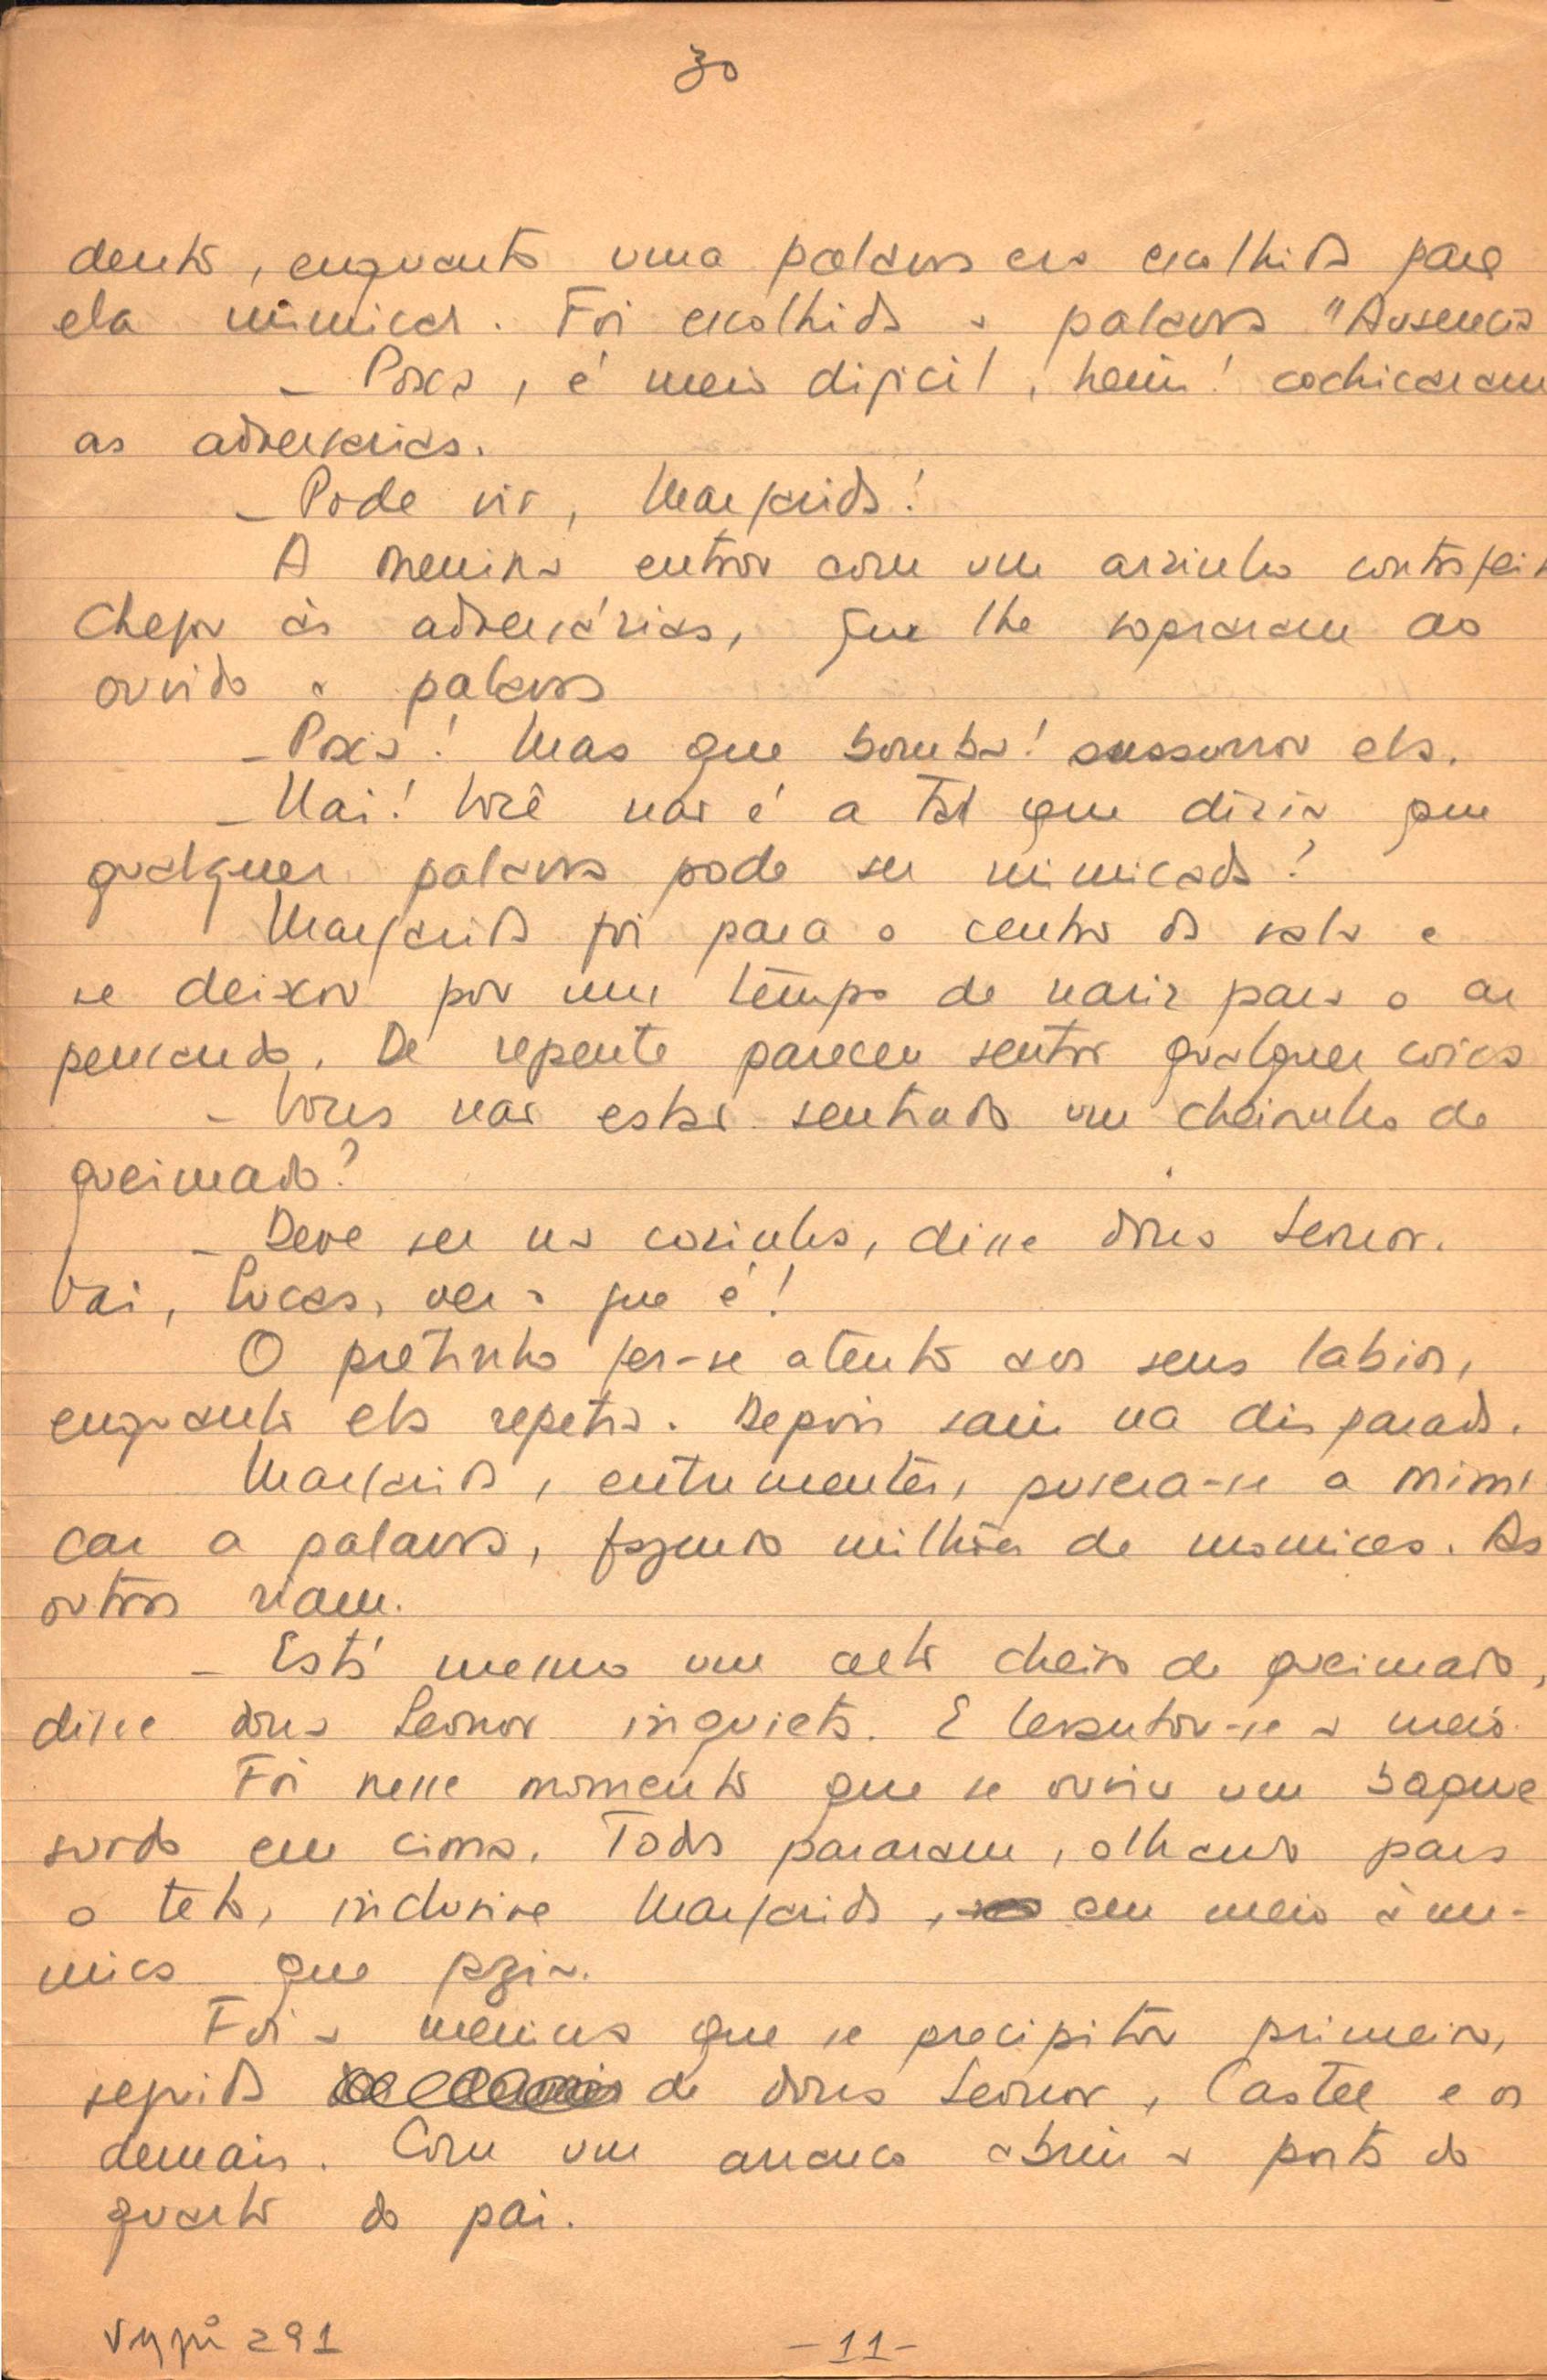 30
dentro, enquanto uma palavra era escolhida para
ela mimicar. Foi escolhida a palavra "Ausencia
- Poxa, é meio dificil, hein! cochicaram
as adversarias.
- Pode vir, Margarida!
A menina entrou com um arzinho contrafeit
Chegou às adversárias, que lhe sopraram ao
ouvido a palavra
- Poxa! Mas que bomba! sussurrou ela.
- Uai! Você não é a tal que dizia que
qualquer palavra pode ser mimicada?
Margarida foi para o centro da sala e
se deixou por um tempo de nariz para o ar
pensando. De repente pareceu sentir qualquer coisa
- Voces não estão sentindo um cheirinho de
queimado?
- Deve ser na cozinha, disse dona Leonor.
Vai, Lucas, ver o que é!
O pretinho fez-se atento aos seus labios,
enquanto ela repetia. Depois saiu na disparada.
Margarida, entrementes, pusera-se a mimi
car a palavra, fazendo milhões de momices. As
outras riam.
- Está mesmo um certo cheiro de queimado,
disse dona Leonor inquieta. E levantou-se a meio.
Foi nesse momento que se ouviu um baque
surdo em cima. Todos pararam, olhando para
o teto, inclusive Margarida, em meio à mi-
mica que fazia.
Foi a menina que se precipitou primeiro,
seguida de dona Leonor, Castel e os
demais. Com um arranco abriu a porta do
quarto do pai.
291
- 11 -